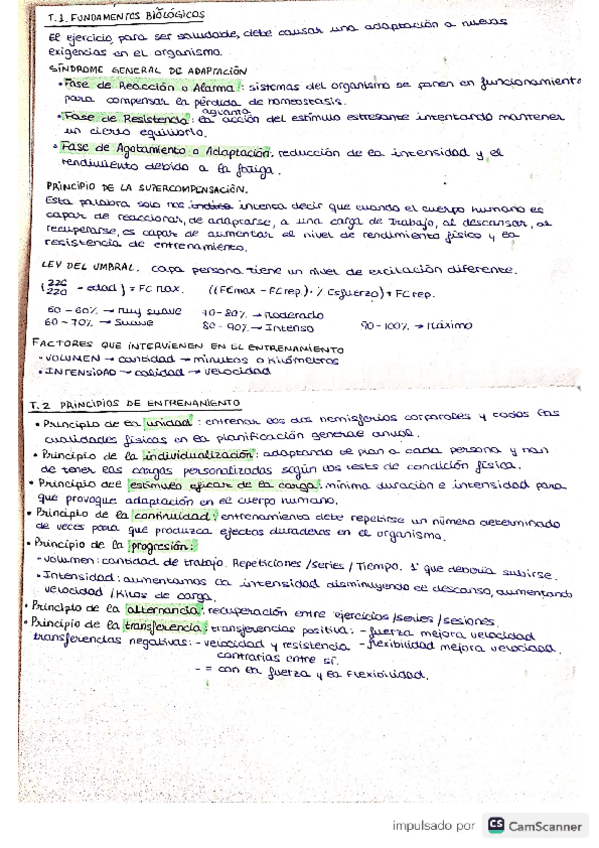 T.1. FUNDAMENTOS BIOLÓGICOS
El ejercicio, para ser saludable, debe causar una adaptación a nuevas
exigencias en el organismo.
SÍNDROME GENERAL DE ADAPTACIÓN
• Fase de Reacción o Alarma: sistemas del organismo se ponen en funcionamiento
para compensar la pérdida de homeostasis.
aguanta
• Fase de Resistencia: la acción del estímulo estresante intentando mantener
un cierto equilibrio.
• Fase de Agotamiento o Adaptación: reducción de la intensidad y el
rendimiento debido a la fatiga.
PRINCIPIO DE LA SUPERCOMPENSACIÓN.
Esta palabra solo nos indica intenta decir que cuando el cuerpo humano es
capaz de reaccionar, de adaptarse, a una carga de trabajo, al descansar, al
recuperarse, es capaz de aumentar el nivel de rendimiento físico y la
resistencia de entrenamiento.
LEY DEL UMBRAL. Capa persona tiene un nivel de excitación diferente.
(226
220 - edad) = FC max. ((FCmax - FCrep.) · % Esfuerzo) + FC rep.
50 - 60% → muy suave 70 - 80% → Moderado
60 - 70% → Suave 80 - 90% → Intenso 90 - 100% → Máximo
FACTORES QUE INTERVIENEN EN EL ENTRENAMIENTO
• VOLUMEN → cantidad → minutos o kilómetros
• INTENSIDAD → calidad → velocidad
T.2 PRINCIPIOS DE ENTRENAMIENTO
• Principio de la unidad: entrenar los dos hemisferios corporales y todas las
cualidades físicas en la planificación general anual.
• Principio de la individualización: adaptando el plan a cada persona y han
de tener las cargas personalizadas según los tests de condición física.
• Principio del estímulo eficaz de la carga: mínima duración e intensidad para
que provoque adaptación en el cuerpo humano.
• Principio de la continuidad: entrenamiento debe repetirse un número determinado
de veces para que produzca efectos duraderos en el organismo.
• Principio de la progresión:
- Volumen: cantidad de trabajo. Repeticiones / Series / Tiempo. 1º que debería subirse.
• Intensidad: aumentamos la intensidad disminuyendo el descanso, aumentando
velocidad / Kilos de carga.
• Principio de la alternancia: recuperación entre ejercicios / series / sesiones.
• Principio de la transferencia: transferencias positiva: - fuerza mejora velocidad
transferencias negativas: - velocidad y resistencia - flexibilidad mejora velocidad.
contrarias entre sí.
- = con la fuerza y la flexibilidad.
impulsado por CS CamScanner